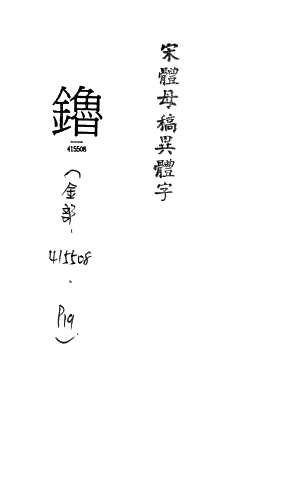 宋體母稿異體字
鑥
415508
(金部.415508.P19)